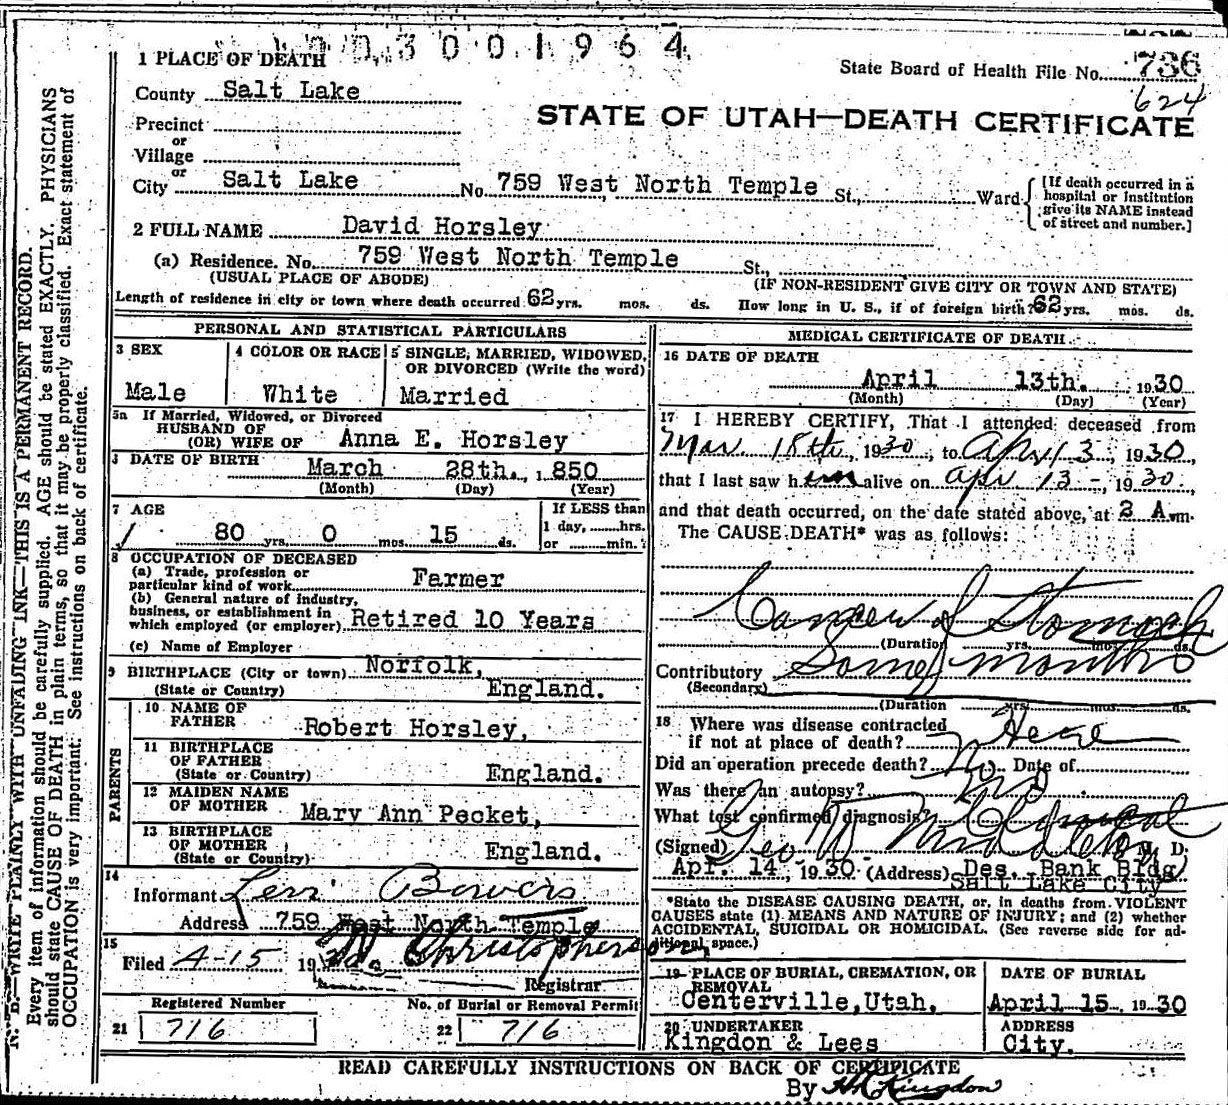 D 0 3 0 0 1 9 6 4
736
1 PLACE OF DEATH
State Board of Health File No.
624
County Salt Lake
STATE OF UTAH—DEATH CERTIFICATE
Precinct
or
Village
or
City Salt Lake No. 759 West North Temple St., Ward
[If death occurred in a
hospital or institution
give its NAME instead
of street and number.]
2 FULL NAME David Horsley
(a) Residence. No. 759 West North Temple St.,
(USUAL PLACE OF ABODE) (IF NON-RESIDENT GIVE CITY OR TOWN AND STATE)
Length of residence in city or town where death occurred 62 yrs. mos. ds. How long in U. S., if of foreign birth? 62 yrs. mos. ds.
PERSONAL AND STATISTICAL PARTICULARS
3 SEX
Male
4 COLOR OR RACE
White
5 SINGLE, MARRIED, WIDOWED,
OR DIVORCED (Write the word)
Married
5a If Married, Widowed, or Divorced
HUSBAND OF
(OR) WIFE OF Anna E. Horsley
DATE OF BIRTH March 28th. 1850
(Month) (Day) (Year)
7 AGE
80 yrs. 0 mos. 15 ds.
If LESS than
1 day, hrs.
or min.
8 OCCUPATION OF DECEASED
(a) Trade, profession or
particular kind of work Farmer
(b) General nature of industry,
business, or establishment in
which employed (or employer) Retired 10 Years
(c) Name of Employer
9 BIRTHPLACE (City or town) Norfolk,
(State or Country) England.
PARENTS
10 NAME OF
FATHER Robert Horsley,
11 BIRTHPLACE
OF FATHER
(State or Country) England.
12 MAIDEN NAME
OF MOTHER Mary Ann Pecket,
13 BIRTHPLACE
OF MOTHER
(State or Country) England.
14
Informant Bowers
Address 759 West North Temple
15
Filed 4-15 19 Christopherson
Registrar
Registered Number
21 716
No. of Burial or Removal Permit
22 716
MEDICAL CERTIFICATE OF DEATH
16 DATE OF DEATH
April 13th. 1930
(Month) (Day) (Year)
17 I HEREBY CERTIFY, That I attended deceased from
Mar 18th, 1930, to Apr 13, 1930,
that I last saw him alive on Apr 13-, 1930.,
and that death occurred, on the date stated above, at 2 A.m.
The CAUSE DEATH* was as follows:
Cancer of Stomach
(Duration yrs. mos. ds.
Contributory Some months
(Secondary)
(Duration yrs. mos. ds.
18 Where was disease contracted
if not at place of death? Here
Did an operation precede death? No. Date of
Was there an autopsy? No
What test confirmed diagnosis? Clinical
(Signed) Geo W M. D.
Apr. 14, 1930 (Address) Des. Bank Bldg
Salt Lake City
*State the DISEASE CAUSING DEATH, or, in deaths from VIOLENT
CAUSES state (1) MEANS AND NATURE OF INJURY; and (2) whether
ACCIDENTAL, SUICIDAL OR HOMICIDAL. (See reverse side for ad-
ditional space.)
19 PLACE OF BURIAL, CREMATION, OR
REMOVAL
Centerville, Utah,
DATE OF BURIAL
April 15 1930
20 UNDERTAKER
Kingdon & Lees
ADDRESS
City.
READ CAREFULLY INSTRUCTIONS ON BACK OF CERTIFICATE
By Kingdon
N. B.—WRITE PLAINLY WITH UNFADING INK—THIS IS A PERMANENT RECORD.
Every item of information should be carefully supplied. AGE should be stated EXACTLY. PHYSICIANS
should state CAUSE OF DEATH in plain terms, so that it may be properly classified. Exact statement of
OCCUPATION is very important. See instructions on back of certificate.